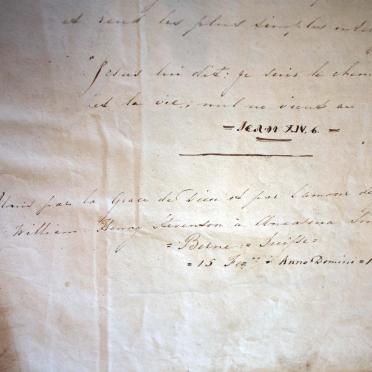 et rend les plus simples
"Jesus lui dit: je suis le chemin
et la vie; nul ne vient au
— JEAN XIV. 6. —
par la Grace de Dieu et par l'amour de
William Henry Stevenson à
= Berne = Suisse
= 15 à Anno Domini =